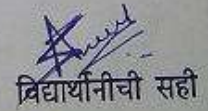 विद्यार्थीनीची सही